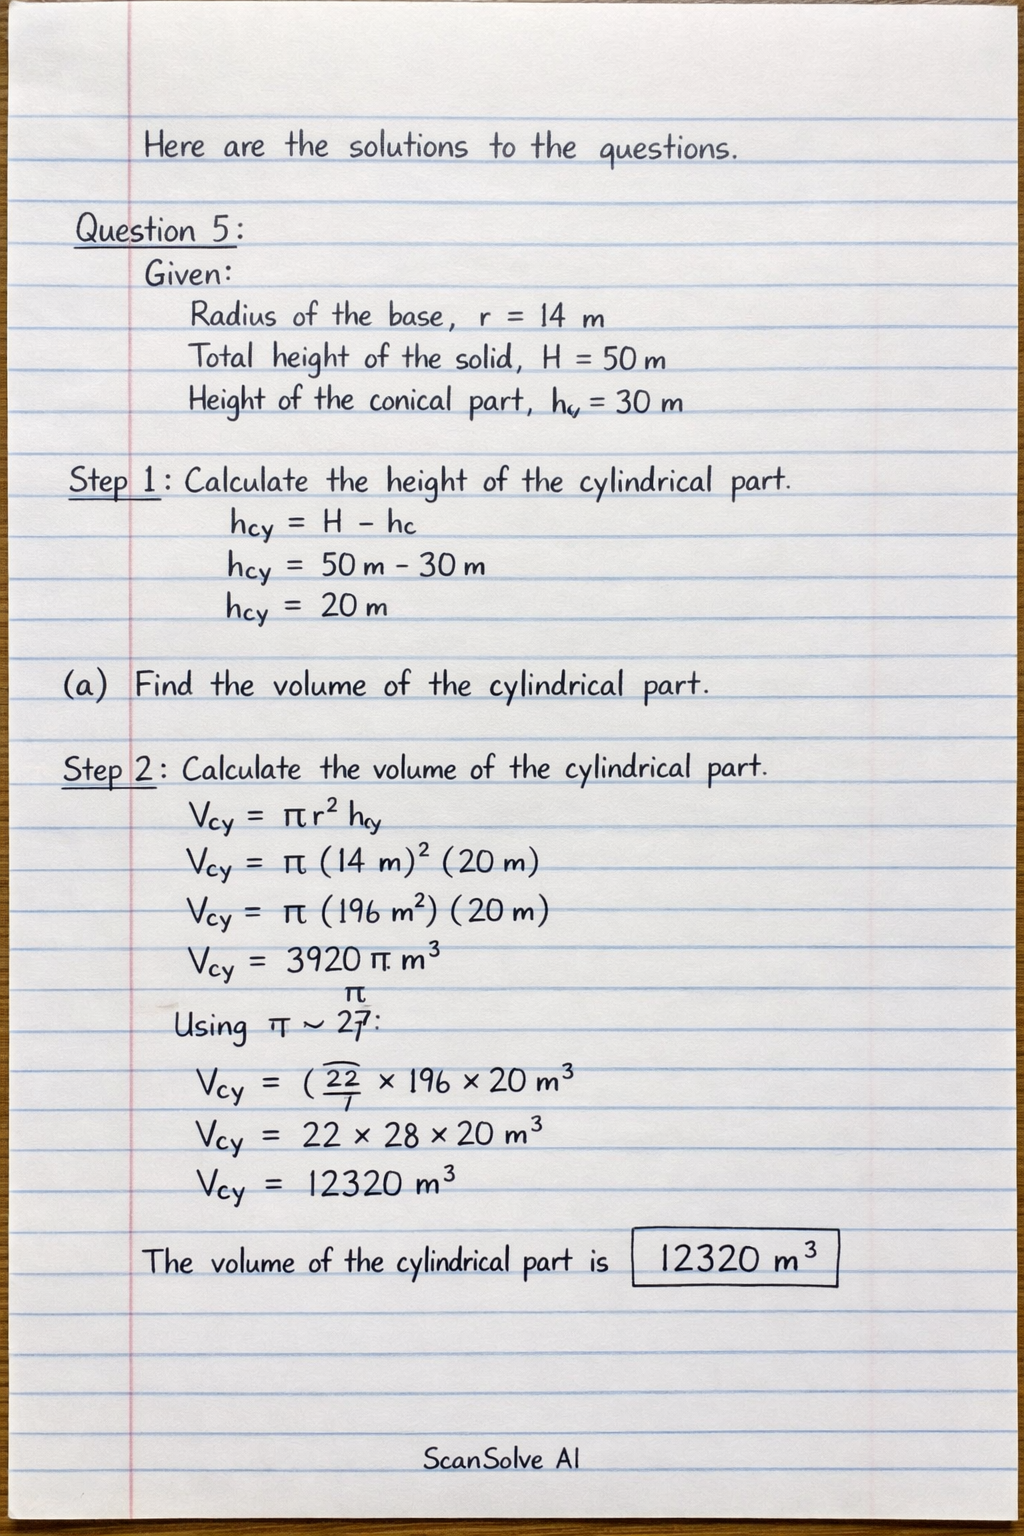 Here are the solutions to the questions.
Question 5:
Given:
Radius of the base, r = 14 m
Total height of the solid, H = 50 m
Height of the conical part, hcy = 30 m
Step 1: Calculate the height of the cylindrical part.
hcy = H - hc
hcy = 50 m - 30 m
hcy = 20 m
(a) Find the volume of the cylindrical part.
Step 2: Calculate the volume of the cylindrical part.
Vcy = πr² hcy
Vcy = π (14 m)² (20 m)
Vcy = π (196 m²) (20 m)
Vcy = 3920 π. m³
π
Using π ~ 27:
Vcy = (22/7 × 196 × 20 m³
Vcy = 22 × 28 × 20 m³
Vcy = 12320 m³
The volume of the cylindrical part is 12320 m³
ScanSolve AI